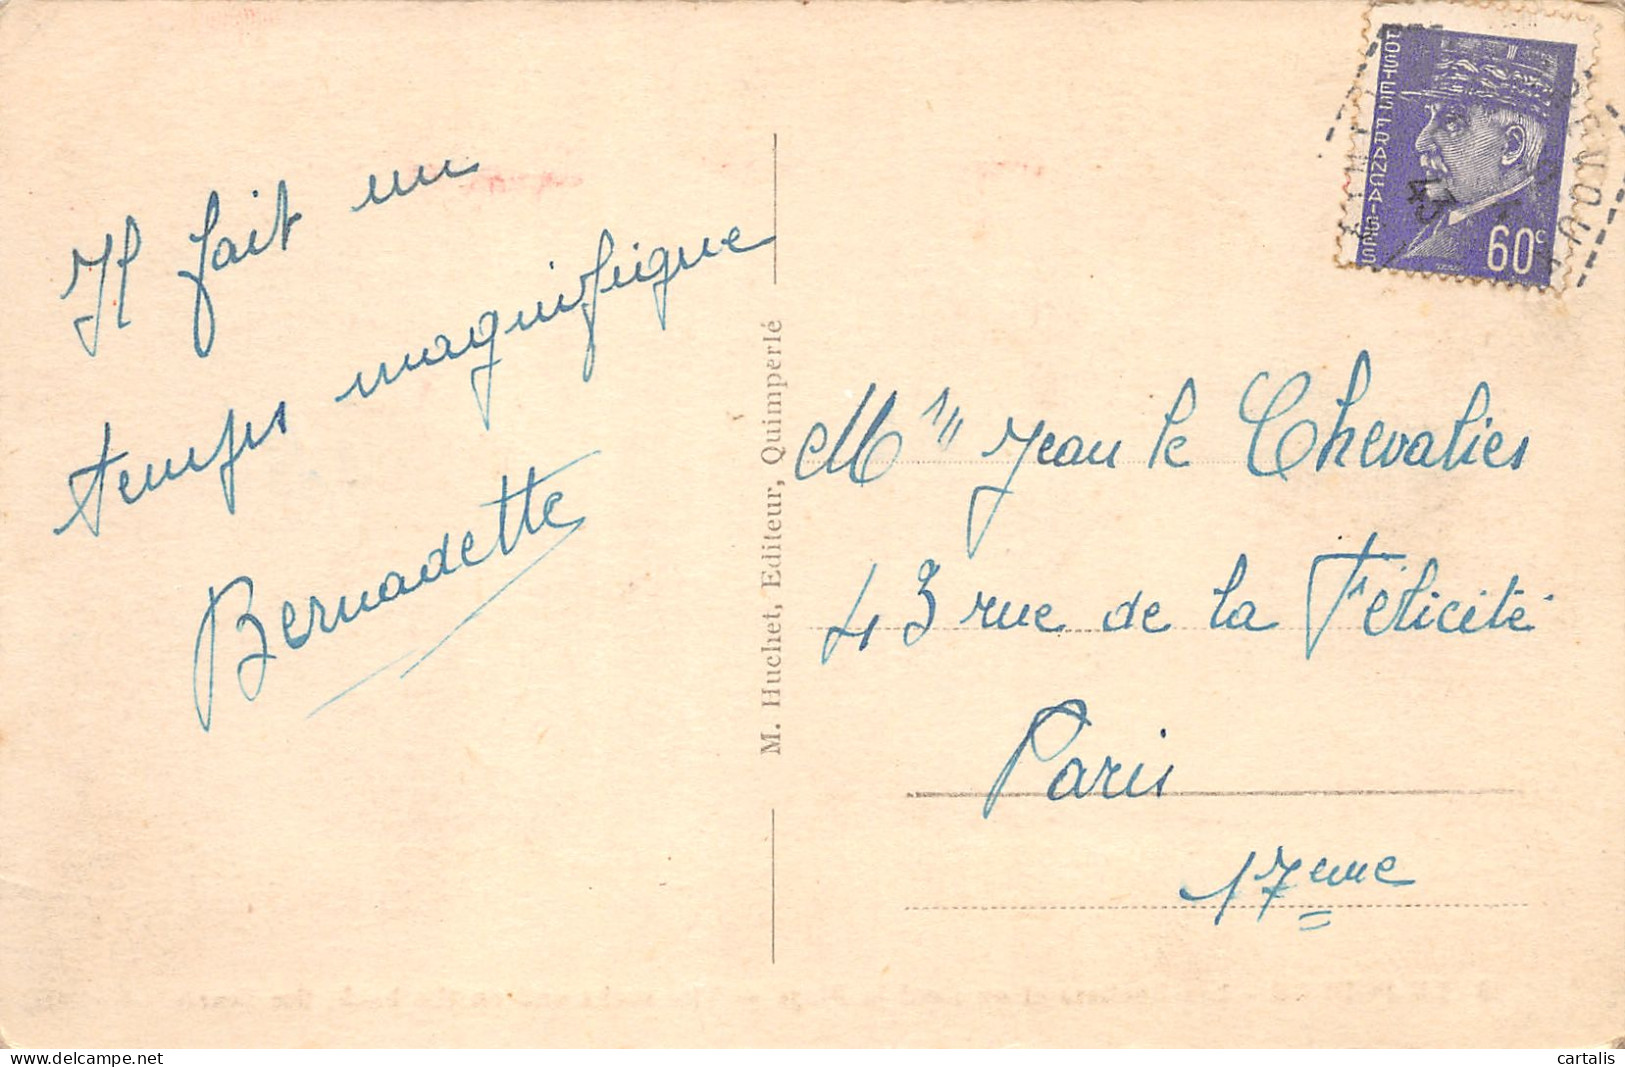 Il fait un
temps magnifique
Bernadette
M. Huchet, Editeur, Quimperlé
POSTES FRANÇAISES
60c
43
Mr Jean le Chevalier
43 rue de la Félicité
Paris
17eme
cartalis